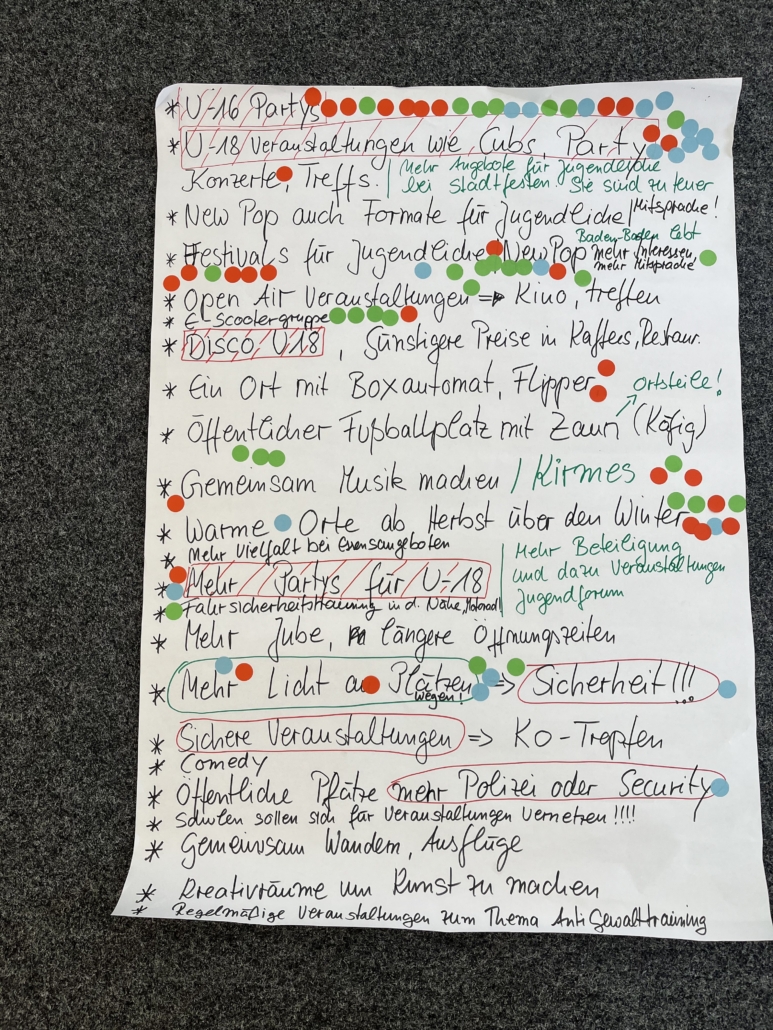 * U-16 Partys
* U-18 Veranstaltungen wie Cubs, Party
Konzerte, Treffs. | Mehr Angebote für Jugendliche
bei Stadtfesten. Sie sind zu teuer
* New Pop auch Formate für Jugendliche / Mitsprache!
Baden-Baden lebt
* Festivals für Jugendliche New Pop mehr Interessen,
mehr Mitsprache
* Open Air Veranstaltungen => Kino, treffen
* E-Scootergruppe
* Disco U18, Günstigere Preise in Kaffees, Restaur.
* Ein Ort mit Boxautomat, Flipper
Ortsteile!
* Öffentlicher Fußballplatz mit Zaun (Käfig)
* Gemeinsam Musik machen / Kirmes
* Warme Orte ab Herbst über den Winter
* Mehr Vielfalt bei Essensangeboten
* Mehr Partys für U-18 | Mehr Beteiligung
und dazu Veranstaltungen
Jugendforum
* Fahrsicherheitstraining in d. Nähe, Motorrad
* Mehr Jube, längere Öffnungszeiten
* Mehr Licht an Plätzen => Sicherheit!!!
Wegen!
* Sichere Veranstaltungen => KO-Tropfen
* Comedy
* Öffentliche Plätze mehr Polizei oder Security
* Schulen sollen sich für Veranstaltungen vernetzen!!!!
* Gemeinsam Wandern, Ausflüge
* Kreativräume um Kunst zu machen
* Regelmäßige Veranstaltungen zum Thema Anti Gewalttraining